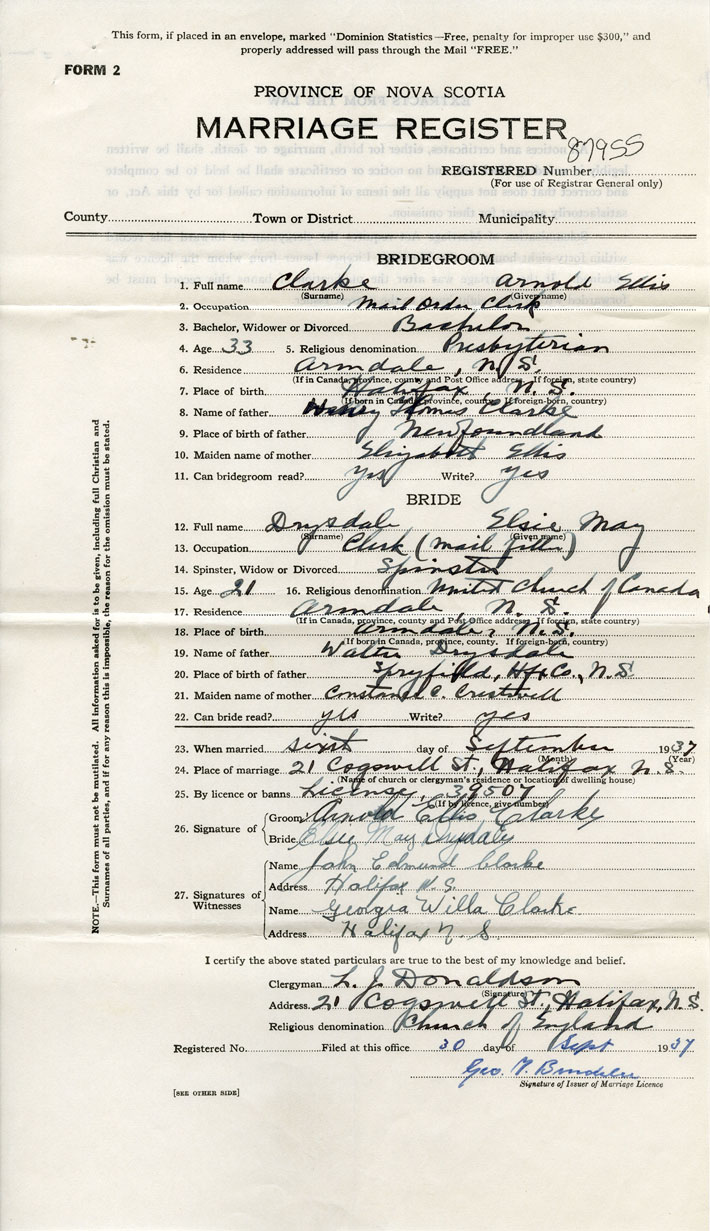 This form, if placed in an envelope, marked "Dominion Statistics—Free, penalty for improper use $300," and
properly addressed will pass through the Mail "FREE."
FORM 2
PROVINCE OF NOVA SCOTIA
MARRIAGE REGISTER
87955
REGISTERED Number
(For use of Registrar General only)
County Town or District Municipality
BRIDEGROOM
1. Full name Clarke Arnold Ellis
(Surname) (Given name)
2. Occupation Mail Order Clerk
3. Bachelor, Widower or Divorced Bachelor
4. Age 33 5. Religious denomination Presbyterian
6. Residence Armdale, N.S.
(If in Canada, province, county and Post Office address. If foreign, state country)
7. Place of birth Halifax N.S.
(If born in Canada, province, county. If foreign-born, country)
8. Name of father Henry Thomas Clarke
9. Place of birth of father Newfoundland
10. Maiden name of mother Elizabeth Ellis
11. Can bridegroom read? yes Write? yes
BRIDE
12. Full name Drysdale, Elsie May
(Surname) (Given name)
13. Occupation Clerk (mail filler)
14. Spinster, Widow or Divorced Spinster
15. Age 21 16. Religious denomination United Church of Canada
17. Residence Armdale, N.S.
(If in Canada, province, county and Post Office address. If foreign, state country)
18. Place of birth Armdale, N.S.
(If born in Canada, province, county. If foreign-born, country)
19. Name of father Walter Drysdale
20. Place of birth of father Spryfield, Hfx Co., N.S.
21. Maiden name of mother Constance C.
22. Can bride read? yes Write? yes
23. When married sixt day of September 1937
(Month) (Year)
24. Place of marriage 21 Cogswell St., Halifax N.S.
(Name of church or clergyman's residence or location of dwelling house)
25. By licence or banns License, 39507
(If by licence, give number)
26. Signature of Groom Arnold Ellis Clarke
Bride Elsie May Drysdale
27. Signatures of Witnesses
Name John Edmund Clarke
Address Halifax N.S.
Name Georgia Willa Clarke
Address Halifax N.S.
I certify the above stated particulars are true to the best of my knowledge and belief.
Clergyman L. J. Donaldson
(Signature)
Address 21 Cogswell St., Halifax, N.S.
Religious denomination Church of England
Registered No. Filed at this office 30 day of Sept 1937
Geo. T.
Signature of Issuer of Marriage Licence
[SEE OTHER SIDE]
NOTE.—This form must not be mutilated. All information asked for is to be given, including full Christian and
Surnames of all parties, and if for any reason this is impossible, the reason for the omission must be stated.